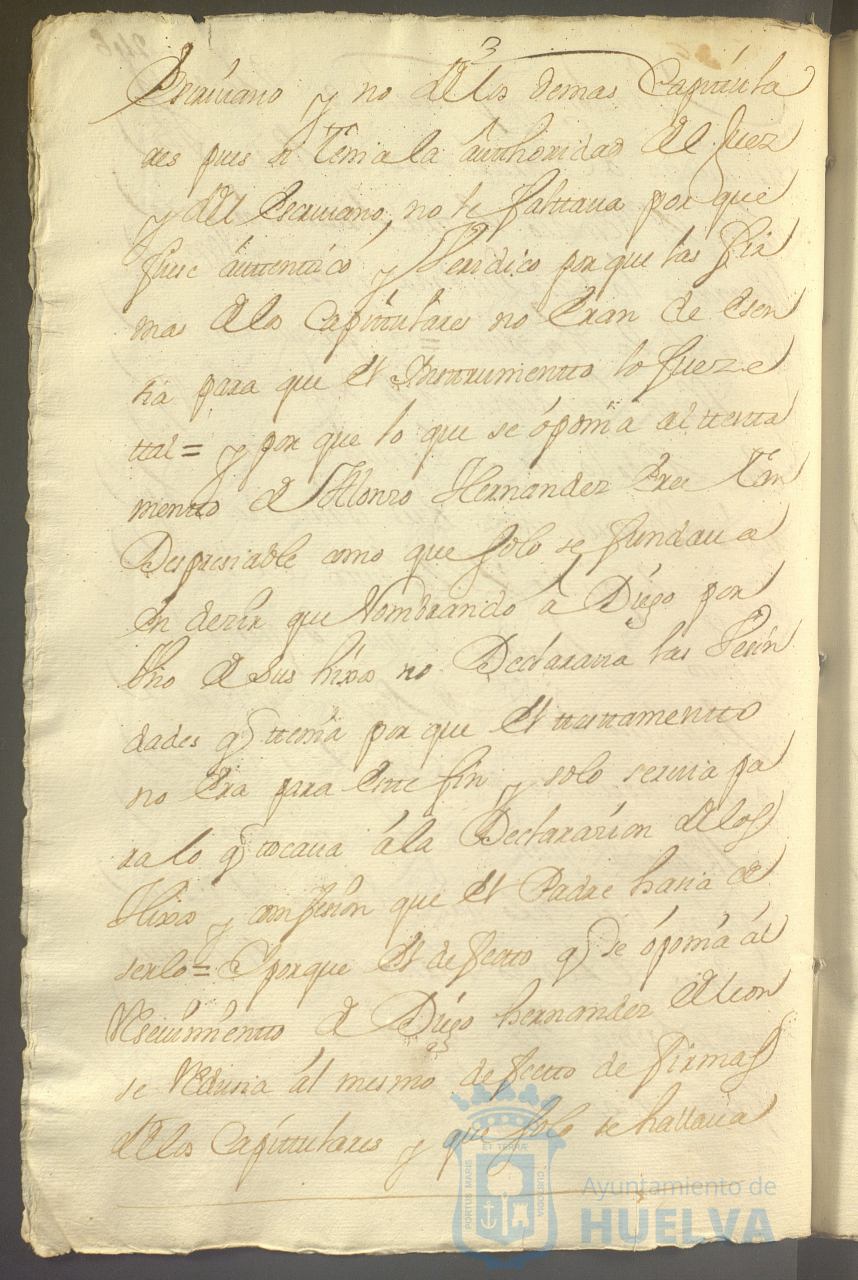 3
Escriuano y no delos demas Capitula
res pues si Tenia la authoridad del Juez
y del Escriuano, no le faltaua por que
fuese auttentico, y Veridico por que las fir
mas delos Capittulares no Eran de Esen
cia para que el Ynstrumentto lo fueze
ttal = y por que lo que se óponia al ttestta
mentto de Alonzo Hernandez Era Tan
Despresiable como que solo se fundaua
En dezir que Nombrando â Diego por
Vno de sus hixos no Declararia las Vecin
dades q ttenia por que el ttesttamentto
no Era para Este fin y solo seruia pa
ra lo q tocaua á la Declarazion delos
Hixos y confesion que el Padre hasia de
serlo = E porque el defectto q se óponia ál
Reseuimientto de Diego hernandez de leon
se Redusia ál mesmo defectto de firmas
delos Capittulares y que solo se hallaua
PORTUS MARIS ET TERRÆ CUSTODIA
Ayuntamiento de
HUELVA